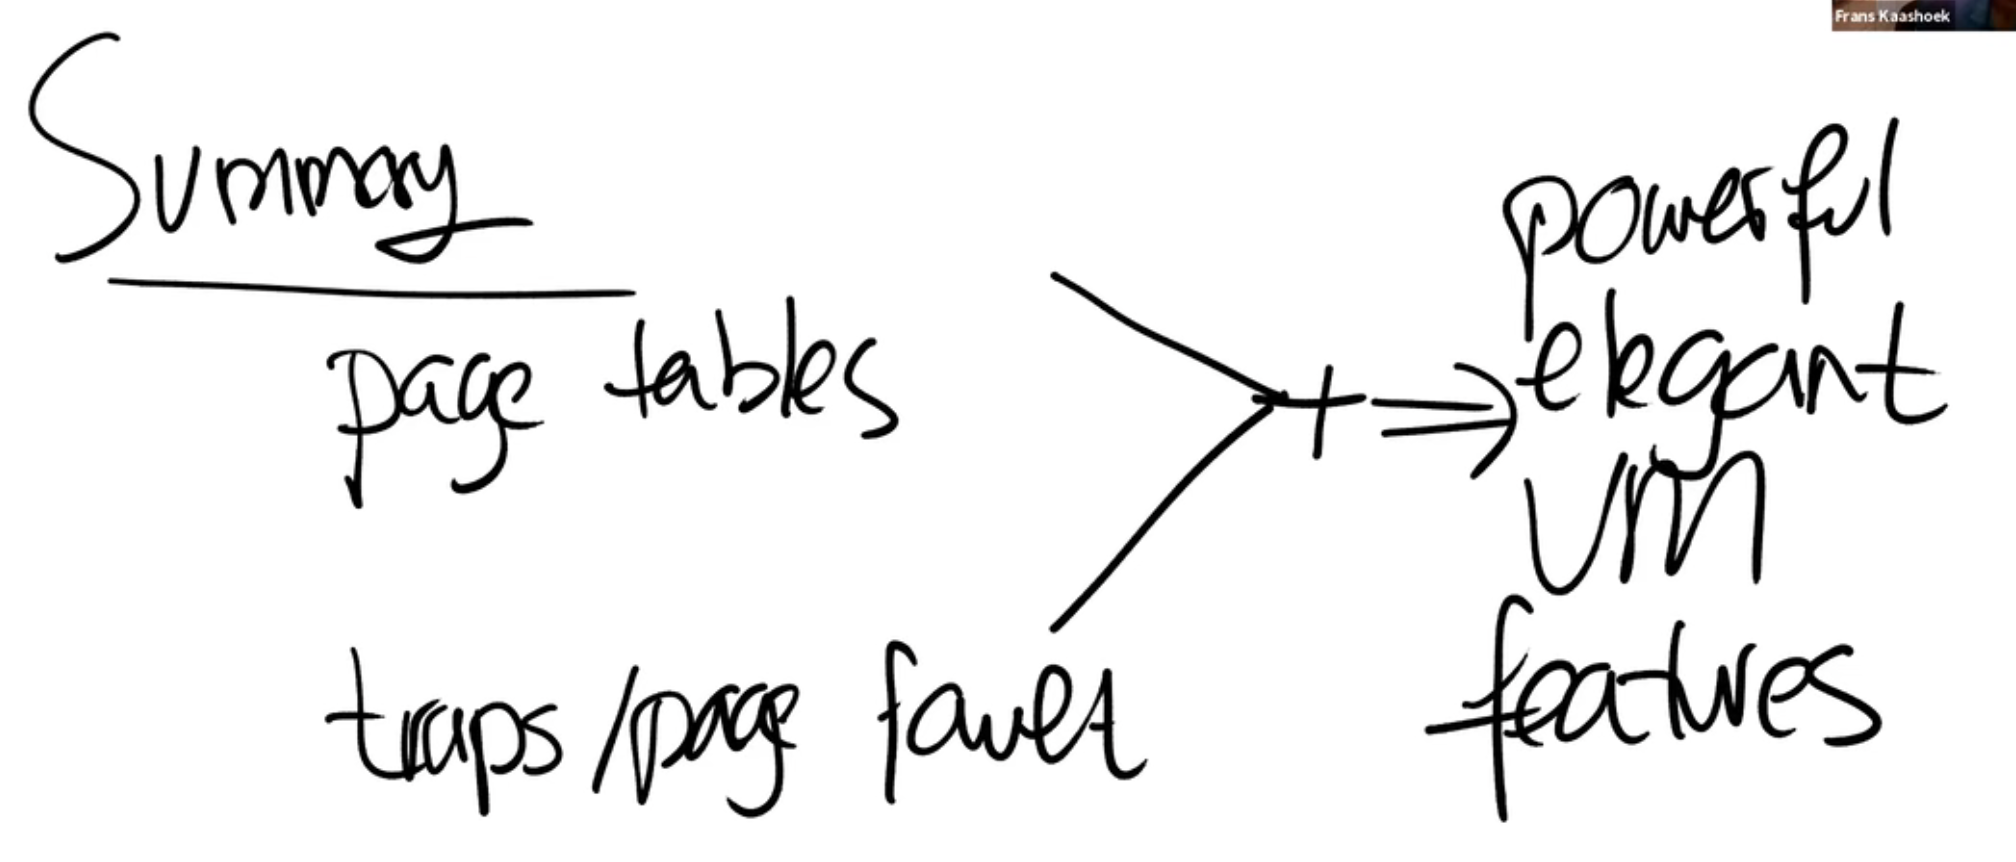 Frans Kaashoek
Summary
page tables
traps/page fault
+ ⇒
powerful
elegant
vm
features